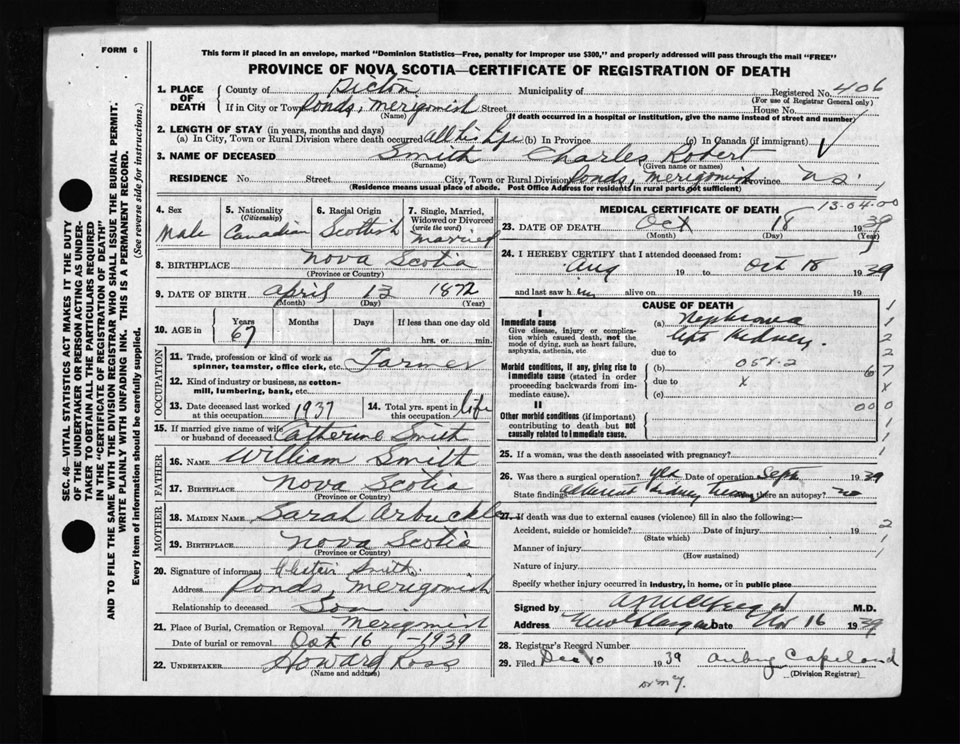 FORM 6
This form if placed in an envelope, marked "Dominion Statistics—Free, penalty for improper use $300," and properly addressed will pass through the mail "FREE"
PROVINCE OF NOVA SCOTIA—CERTIFICATE OF REGISTRATION OF DEATH
SEC. 46—VITAL STATISTICS ACT MAKES IT THE DUTY
OF THE UNDERTAKER OR PERSON ACTING AS UNDER-
TAKER TO OBTAIN ALL THE PARTICULARS REQUIRED
IN THE "CERTIFICATE OF REGISTRATION OF DEATH"
AND TO FILE THE SAME WITH THE DIVISION REGISTRAR WHO SHALL ISSUE THE BURIAL PERMIT.
WRITE PLAINLY WITH UNFADING INK. THIS IS A PERMANENT RECORD.
Every item of information should be carefully supplied. (See reverse side for instructions.)
1. PLACE OF DEATH
County of Pictou Municipality of Registered No. 406
(For use of Registrar General only)
If in City or Town Ponds, Merigomish Street House No.
(Name) (If death occurred in a hospital or institution, give the name instead of street and number)
2. LENGTH OF STAY (in years, months and days)
(a) In City, Town or Rural Division where death occurred all his life (b) In Province (c) In Canada (if immigrant)
3. NAME OF DECEASED Smith Charles Robert
(Surname) (Given name or names)
RESIDENCE No. Street City, Town or Rural Division Ponds, Merigomish Province N.S.
(Residence means usual place of abode. Post Office Address for residents in rural parts not sufficient)
4. Sex Male
5. Nationality (Citizenship) Canadian
6. Racial Origin Scottish
7. Single, Married, Widowed or Divorced (write the word) Married
8. BIRTHPLACE Nova Scotia
(Province or Country)
9. DATE OF BIRTH April 13 1872
(Month) (Day) (Year)
10. AGE in Years 67 Months Days If less than one day old
hrs. or min.
OCCUPATION
11. Trade, profession or kind of work as spinner, teamster, office clerk, etc. Farmer
12. Kind of industry or business, as cotton-mill, lumbering, bank, etc.
13. Date deceased last worked at this occupation 1937
14. Total yrs. spent in this occupation life
15. If married give name of wife or husband of deceased Catherine Smith
FATHER
16. NAME William Smith
17. BIRTHPLACE Nova Scotia
(Province or Country)
MOTHER
18. MAIDEN NAME Sarah Arbuckle
19. BIRTHPLACE Nova Scotia
(Province or Country)
20. Signature of informant Alistair Smith
Address Ponds, Merigomish
Relationship to deceased Son
21. Place of Burial, Cremation or Removal Merigomish
Date of burial or removal Oct 16 - 1939
22. UNDERTAKER Howard Ross
(Name and address)
MEDICAL CERTIFICATE OF DEATH 13-04-00
23. DATE OF DEATH Oct 18 1939
(Month) (Day) (Year)
24. I HEREBY CERTIFY that I attended deceased from:
Aug 19 to Oct 18 1939
and last saw him alive on 19
CAUSE OF DEATH
I
Immediate cause
Give disease, injury or complication which caused death, not the mode of dying, such as heart failure, asphyxia, asthenia, etc
(a)
Left Kidney
due to
Morbid conditions, if any, giving rise to immediate cause (stated in order proceeding backwards from immediate cause).
(b) 058-2
due to X
(c)
II
Other morbid conditions (if important) contributing to death but not causally related to immediate cause.
25. If a woman, was the death associated with pregnancy?
26. Was there a surgical operation? yes Date of operation Sept 1939
State findings Kidney Was there an autopsy? no
27. If death was due to external causes (violence) fill in also the following:—
Accident, suicide or homicide? Date of injury 19
(State which)
Manner of injury
(How sustained)
Nature of injury
Specify whether injury occurred in industry, in home, or in public place
Signed by M.D.
Address New Glasgow Date Nov 16 1939
28. Registrar's Record Number
29. Filed Dec 10 1939 Aubrey Copeland
(Division Registrar)